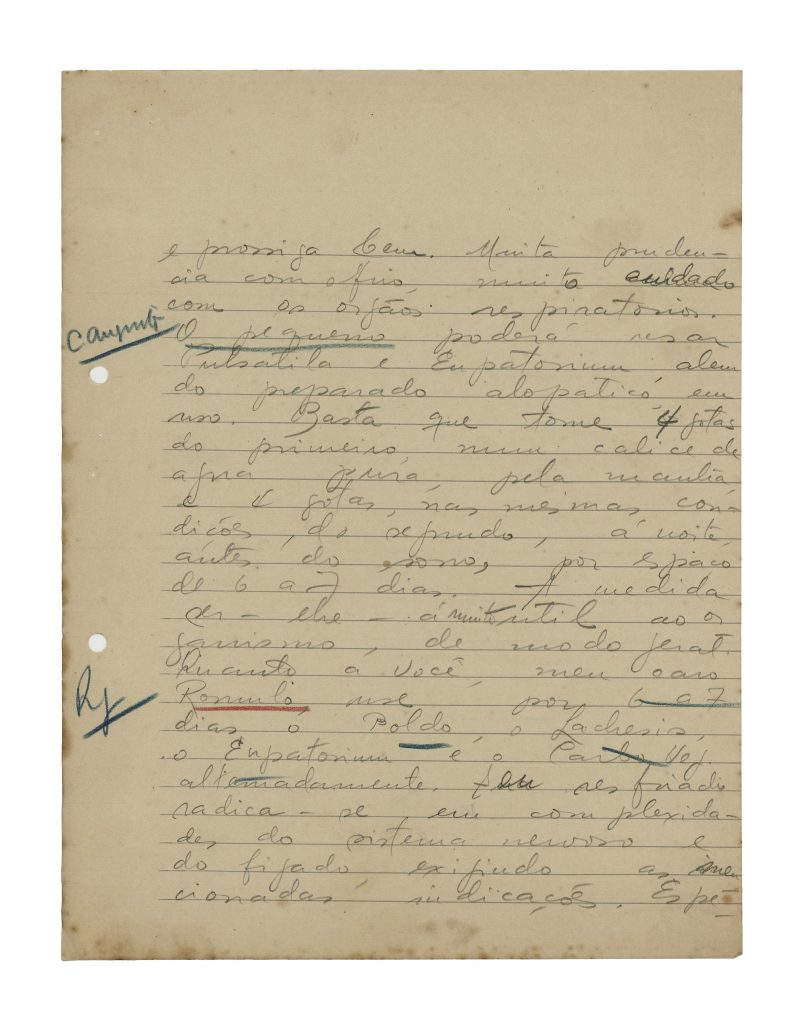 e prossiga bem. Muita pruden-
cia com o frio, muito cuidado
com os orgãos respiratorios.
O pequeno poderá usar
Pulsatila e Eupatorium alem
do preparado alopatico, em
uso. Basta que tome 4 gotas
do primeiro, num calice de
agua pura, pela manhã,
e 4 gotas, nas mesmas con-
dições, do segundo, á noite,
antes do sono, por espaço
de 6 a 7 dias. A medida
ser-lhe-á muito util ao or
ganismo, de modo geral.
Quanto a você, meu caro
Romulo use por 6 a 7
dias o Boldo, o Lachesis,
o Eupatorium e o Carbo Veg.
alternadamente. Seu resfriado
radica-se em complexida-
des do sistema nervoso e
do figado, exigindo as men
cionadas indicações. Espe-